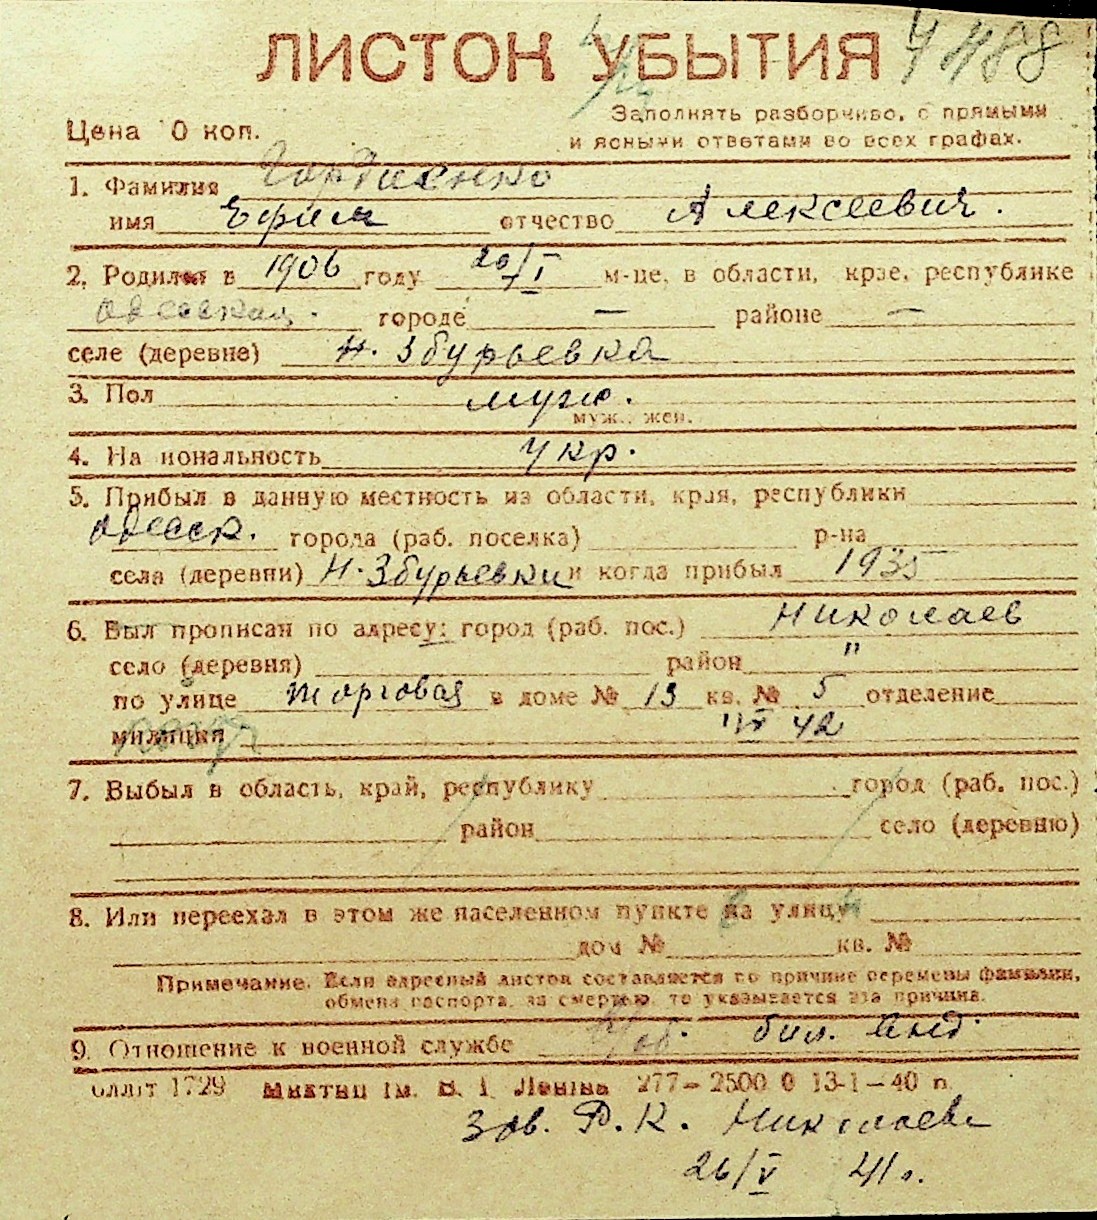 ЛИСТОК УБЫТИЯ 4488
Заполнять разборчиво, с прямыми
Цена 10 коп.
и ясными ответами во всех графах.
1. Фамилия Гордиенко
имя Ефим отчество Алексеевич.
2. Родился в 1906 году 20/I м-це, в области, крзе, республике
Одесская. городе — районе —
селе (деревне) Н. Збурьевка
3. Пол муж.
муж., жен.
4. Национальность Укр.
5. Прибыл в данную местность из области, края, республики
Одесск. города (раб. поселка) р-на
села (деревни) Н. Збурьевки и когда прибыл 1935
6. Был прописан по адресу: город (раб. пос.) Николаев
село (деревня) район "
по улице Торговая в доме № 13 кв. № 5 отделение
милиции 42
7. Выбыл в область, край, республику город (раб. пос.)
район село (деревню)
8. Или переехал в этом же населенном пункте на улицу
дом № кв. №
Примечание. Если адресный листок составляется по причине перемены фамилии,
обмена паспорта, за смертью, то указывается эта причина.
9. Отношение к военной службе
1729 ім. В. І. Леніна 277–2500 0 13-1–40 п.
Зав. Р.К. Николаев
26/V 41 г.